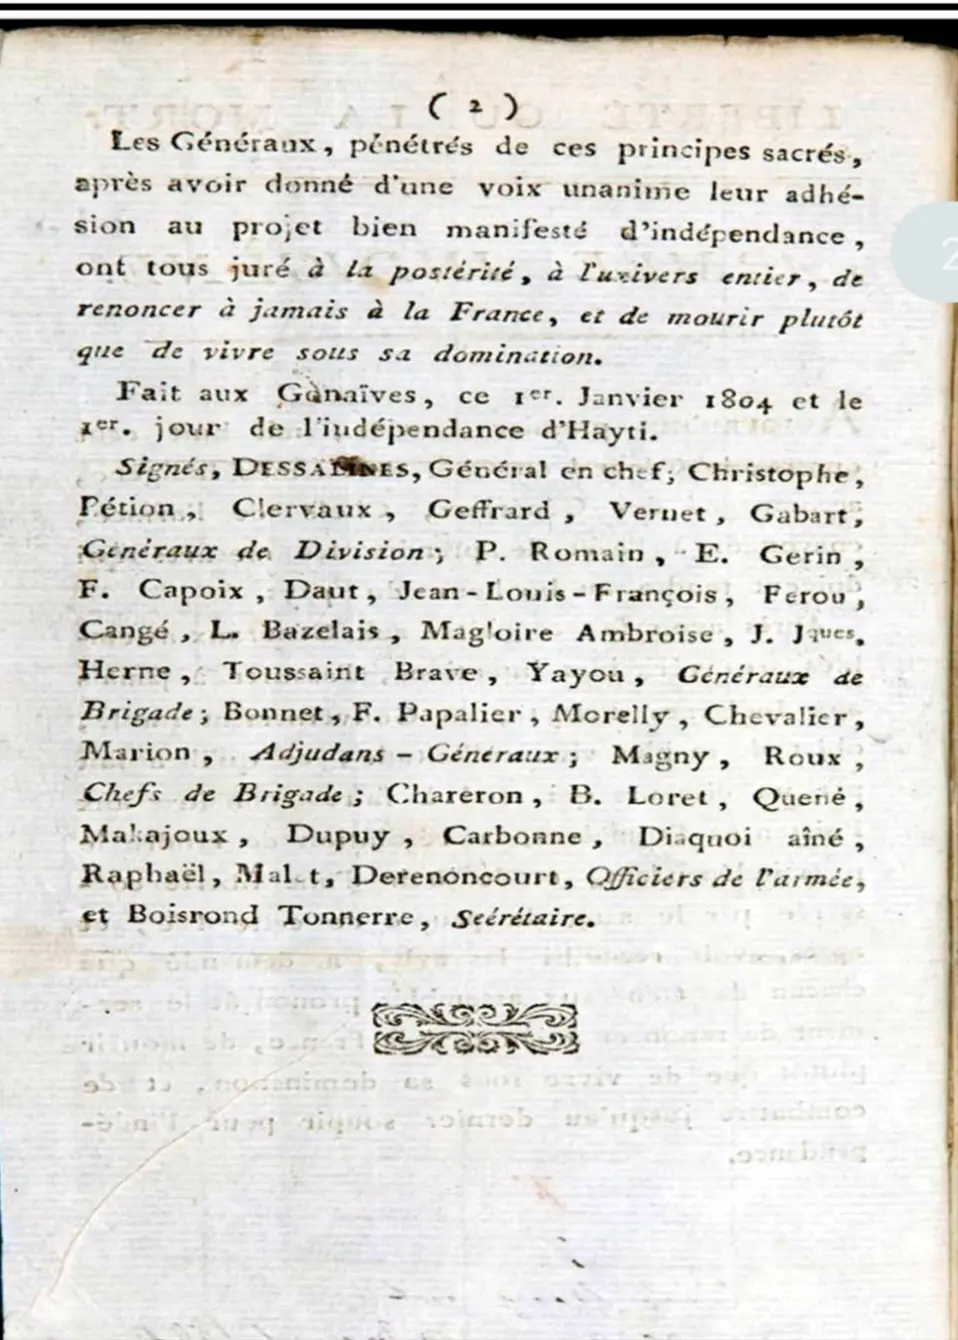 ( 2 )
Les Généraux, pénétrés de ces principes sacrés,
après avoir donné d'une voix unanime leur adhé-
sion au projet bien manifesté d'indépendance,
ont tous juré à la postérité, à l'univers entier, de
renoncer à jamais à la France, et de mourir plutôt
que de vivre sous sa domination.
Fait aux Gonaïves, ce 1er. Janvier 1804 et le
1er. jour de l'indépendance d'Hayti.
Signés, DESSALINES, Général en chef; Christophe,
Pétion, Clervaux, Geffrard, Vernet, Gabart,
Généraux de Division; P. Romain, E. Gerin,
F. Capoix, Daut, Jean-Louis-François, Ferou,
Cangé, L. Bazelais, Magloire Ambroise, J. Jques.
Herne, Toussaint Brave, Yayou, Généraux de
Brigade; Bonnet, F. Papalier, Morelly, Chevalier,
Marion, Adjudans-Généraux; Magny, Roux,
Chefs de Brigade; Chareron, B. Loret, Quené,
Makajoux, Dupuy, Carbonne, Diaquoi aîné,
Raphaël, Malet, Derenoncourt, Officiers de l'armée,
et Boisrond Tonnerre, Seérétaire.
2